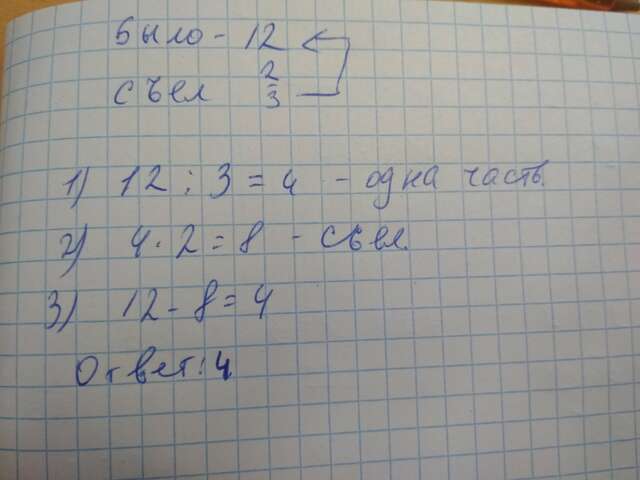 Было - 12
съел 2/3
1) 12 : 3 = 4 - одна часть.
2) 4 · 2 = 8 - съел.
3) 12 - 8 = 4
Ответ: 4